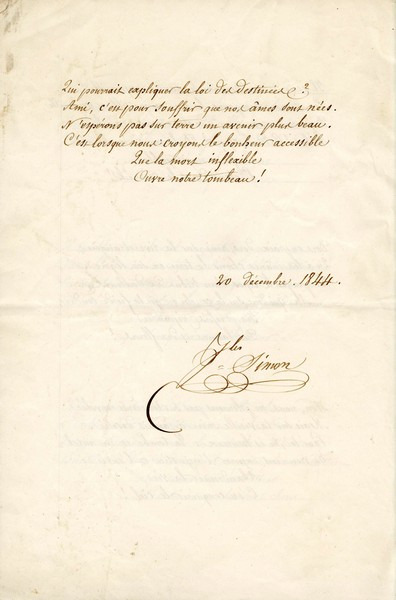 Qui pourrait expliquer la loi des destinées ?
Ami, c'est pour souffrir que nos âmes sont nées.
N'espérons pas sur terre un avenir plus beau.
C'est lorsque nous croyons le bonheur accessible
Que la mort inflexible
Ouvre notre tombeau !
20 décembre. 1844.
Jles Simon